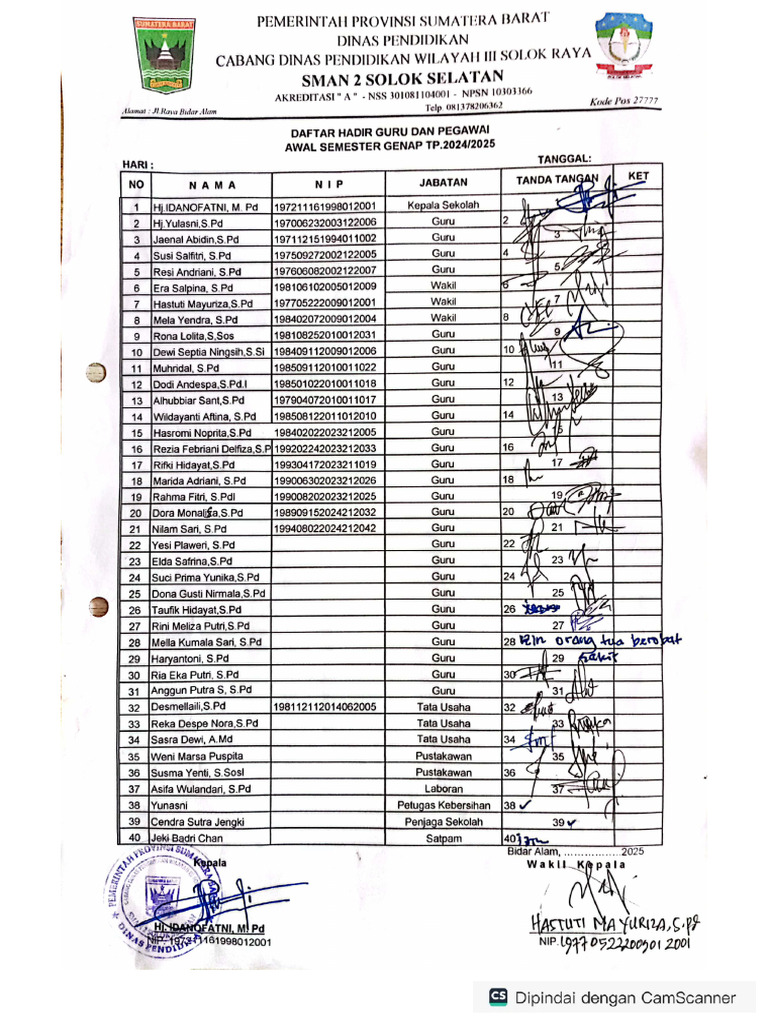 SUMATERA BARAT
PEMERINTAH PROVINSI SUMATERA BARAT
DINAS PENDIDIKAN
CABANG DINAS PENDIDIKAN WILAYAH III SOLOK RAYA
SMAN 2 SOLOK SELATAN
AKREDITASI " A " - NSS 301081104001 - NPSN 10303366
Telp. 081378206362
Alamat : Jl.Raya Bidar Alam
Kode Pos 27777
DAFTAR HADIR GURU DAN PEGAWAI
AWAL SEMESTER GENAP TP.2024/2025
HARI : TANGGAL:
NO N A M A N I P JABATAN TANDA TANGAN KET
1 Hj.IDANOFATNI, M. Pd 197211161998012001 Kepala Sekolah
2 Hj.Yulasni,S.Pd 197006232003122006 Guru 2
3 Jaenal Abidin,S.Pd 197112151994011002 Guru 3
4 Susi Salfitri, S.Pd 197509272002122005 Guru 4
5 Resi Andriani, S.Pd 197606082002122207 Guru 5
6 Era Salpina, S.Pd 198106102005012009 Wakil 6
7 Hastuti Mayuriza,S.Pd 197705222009012001 Wakil 7
8 Mela Yendra, S.Pd 198402072009012004 Wakil 8
9 Rona Lolita,S,Sos 198108252010012031 Guru 9
10 Dewi Septia Ningsih,S.Si 198409112009012006 Guru 10
11 Muhridal, S.Pd 198509112010011022 Guru 11
12 Dodi Andespa,S.Pd.I 198501022010011018 Guru 12
13 Alhubbiar Sant,S.Pd 197904072010011017 Guru 13
14 Wildayanti Aftina, S.Pd 198508122011012010 Guru 14
15 Hasromi Noprita,S.Pd 198402022023212005 Guru 15
16 Rezia Febriani Delfiza,S.P 199202242023212033 Guru 16
17 Rifki Hidayat,S.Pd 199304172023211019 Guru 17
18 Marida Adriani, S.Pd 199006302023212026 Guru 18
19 Rahma Fitri, S.PdI 199008202023212025 Guru 19
20 Dora Monalisa,S.Pd 198909152024212032 Guru 20
21 Nilam Sari, S.Pd 199408022024212042 Guru 21
22 Yesi Plaweri, S.Pd Guru 22
23 Elda Safrina,S.Pd Guru 23
24 Suci Prima Yunika,S.Pd Guru 24
25 Dona Gusti Nirmala,S.Pd Guru 25
26 Taufik Hidayat,S.Pd Guru 26
27 Rini Meliza Putri,S.Pd Guru 27
28 Mella Kumala Sari, S.Pd Guru 28 Izin orang tua berobat
29 Haryantoni, S.Pd Guru 29 Sakit
30 Ria Eka Putri, S.Pd Guru 30
31 Anggun Putra S, S.Pd Guru 31
32 Desmellaili,S.Pd 198112112014062005 Tata Usaha 32
33 Reka Despe Nora,S.Pd Tata Usaha 33
34 Sasra Dewi, A.Md Tata Usaha 34
35 Weni Marsa Puspita Pustakawan 35
36 Susma Yenti, S.SosI Pustakawan 36
37 Asifa Wulandari, S.Pd Laboran 37
38 Yunasni Petugas Kebersihan 38 ✓
39 Cendra Sutra Jengki Penjaga Sekolah 39 ✓
40 Jeki Badri Chan Satpam 40
Bidar Alam, ................ 2025
Kepala Wakil Kepala
PEMERINTAH PROVINSI SUMATERA
DINAS PENDIDIKAN
Hj. IDANOFATNI, M. Pd
NIP. 197211161998012001
HASTUTI MAYURIZA, S.Pd
NIP. 197705222009012001
CS Dipindai dengan CamScanner